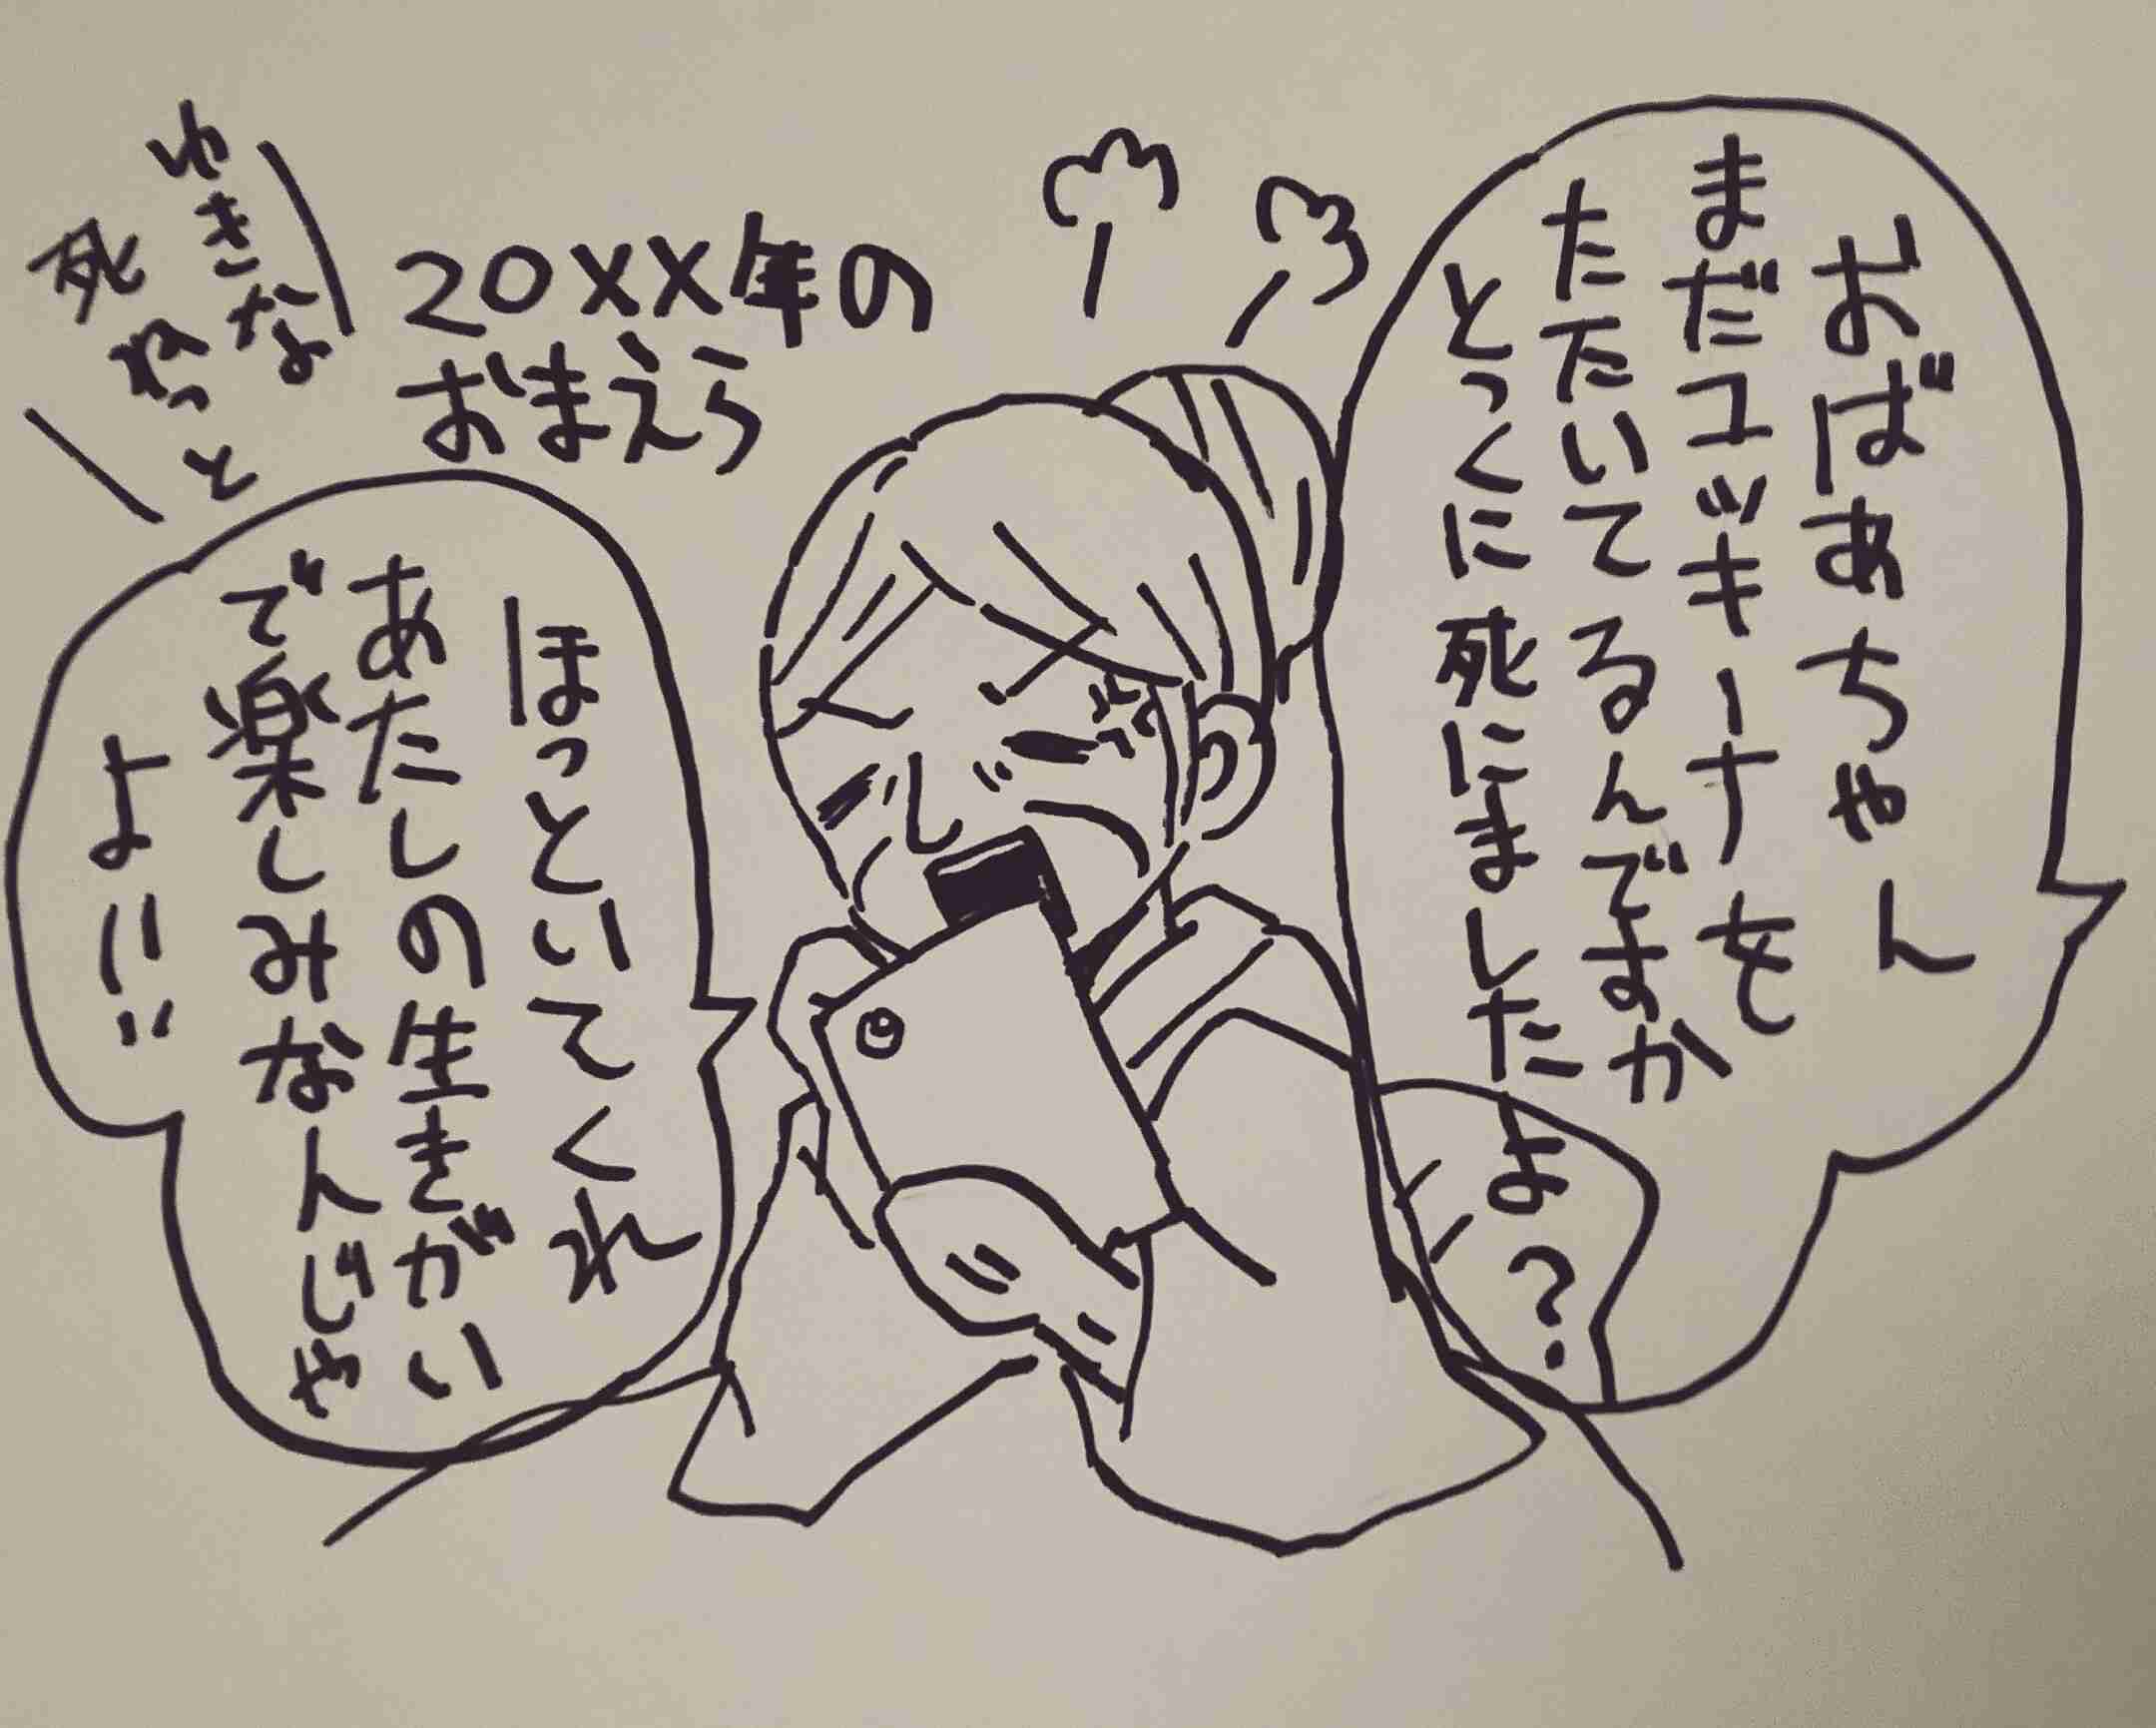 おばあちゃん
まだユッキーナを
たたいてるんですか
とっくに死にました
よ?
20XX年の
おまえら
ゆきな
死ねっと
ほっといてくれ
あたしの生きがい
で楽しみなんじゃ
よ!!